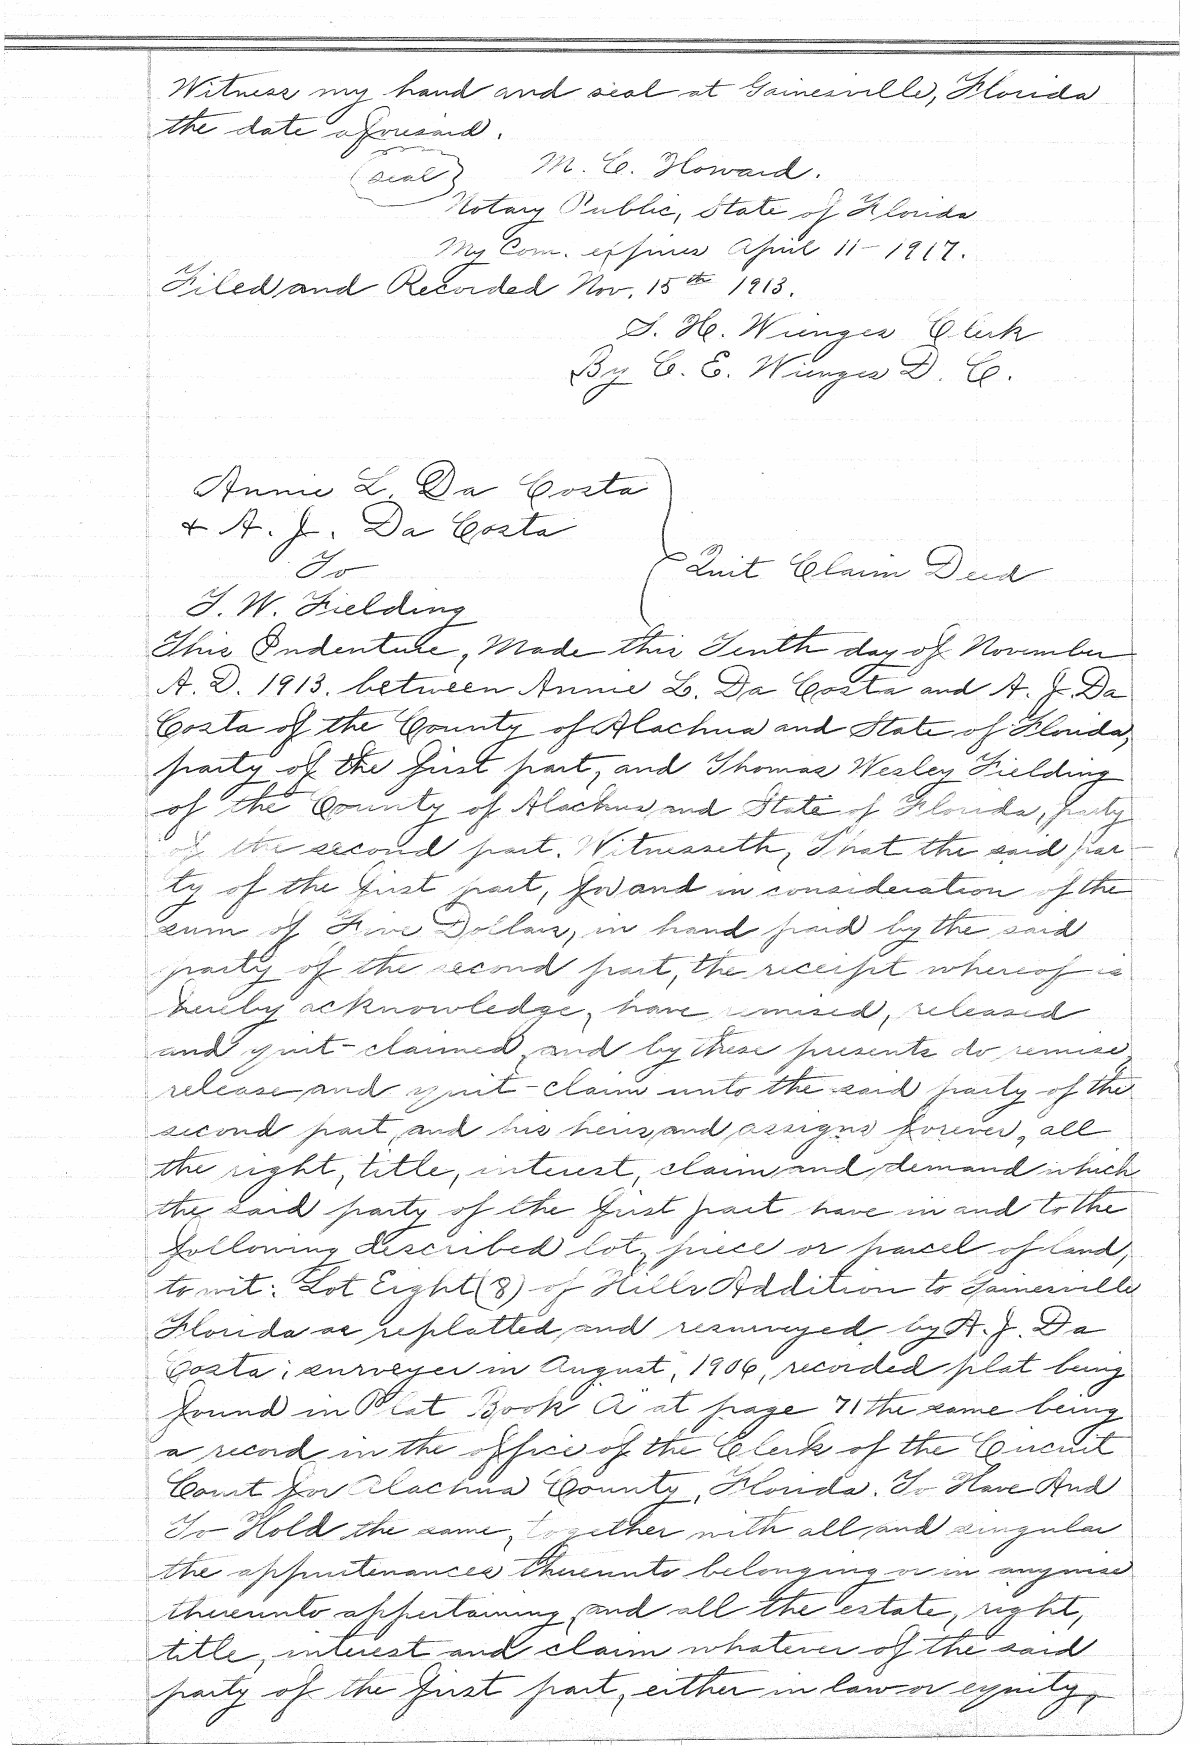 Witness my hand and seal at Gainesville, Florida
the date aforesaid.
(seal) M. C. Howard.
Notary Public, State of Florida
My Com. expires April 11 - 1917.
Filed and Recorded Nov. 15th 1913.
S. H. Wienges Clerk
By C. E. Wienges D. C.
Annie L. Da Costa
& A. J. Da Costa
To
Quit Claim Deed
T. W. Fielding
This Indenture, Made this Tenth day of November
A. D. 1913. between Annie L. Da Costa and A. J. Da
Costa of the County of Alachua and State of Florida,
party of the first part, and Thomas Wesley Fielding
of the County of Alachua and State of Florida, party
of the second part. Witnesseth, That the said par-
ty of the first part, for and in consideration of the
sum of Five Dollars, in hand paid by the said
party of the second part, the receipt whereof is
hereby acknowledge, have remised, released
and quit-claimed, and by these presents do remise,
release and quit-claim unto the said party of the
second part, and his heirs and assigns forever, all
the right, title, interest, claim and demand which
the said party of the first part have in and to the
following described lot, piece or parcel of land,
to wit: Lot Eight (8) of Hills Addition to Gainesville
Florida as replatted and resurveyed by A. J. Da
Costa; surveyer in August, 1906, recorded plat being
found in Plat Book "A" at page 71 the same being
a record in the office of the Clerk of the Circuit
Court for Alachua County, Florida. To Have And
To Hold the same, together with all and singular
the appurtenances thereunto belonging or in anywise
thereunto appertaining, and all the estate, right,
title, interest and claim whatever of the said
party of the first part, either in law or equity,